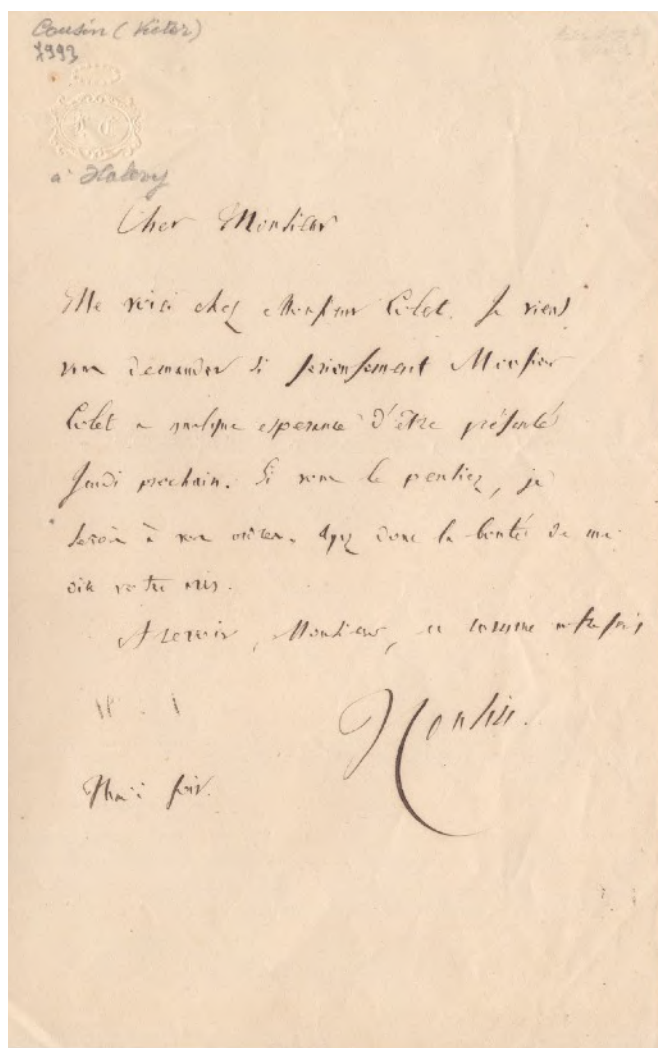 Cousin (Victor)
7993
V C
à Halevy
Cher Monsieur
Me voici chez Monsieur Colet. Je viens
vous demander si serieusement Monsieur
Colet a quelque esperance d'être présenté
Jeudi prochain. Si vous le pensiez, je
serois à vos ordres. Ayez donc la bonté de me
dire votre avis.
A revoir, Monsieur,
V Cousin.
soir.